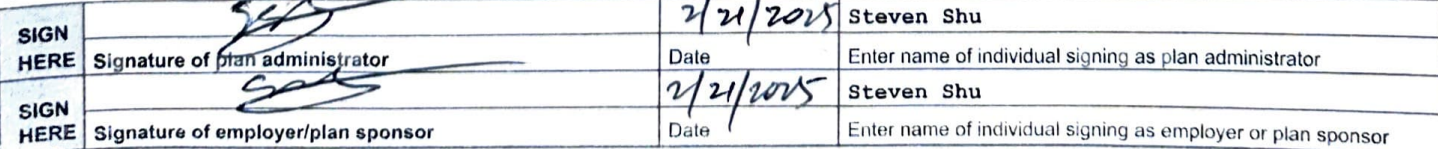 SIGN HERE 2/21/2025 Steven Shu
Signature of plan administrator Date Enter name of individual signing as plan administrator
SIGN HERE 2/21/2025 Steven Shu
Signature of employer/plan sponsor Date Enter name of individual signing as employer or plan sponsor